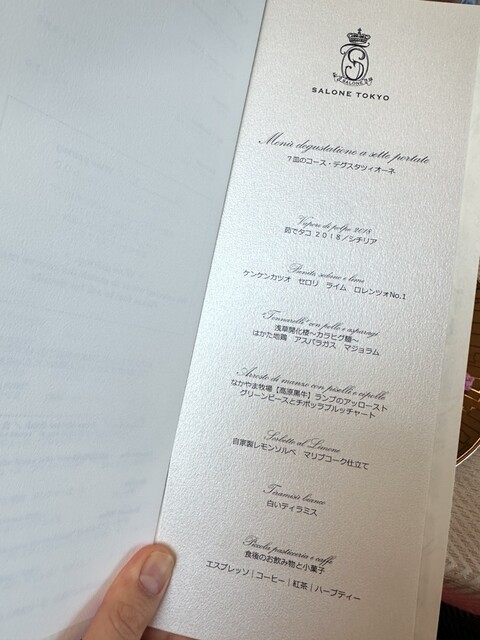 SALONE
SALONE TOKYO
Menù degustazione a sette portate
7皿のコース・デグスタツィオーネ
Vapore di polpo 2018
茹でタコ 2018／シチリア
sedano e lime
ケンケンカツオ セロリ ライム ロレンツォNo.1
"Tonnarelli" con pollo e asparagi
浅草開化楼～カラヒグ麺～
はかた地鶏 アスパラガス マジョラム
Arrosto di manzo con piselle e cipolle
なかやま牧場【高原黒牛】ランプのアッロースト
グリーンピースとチポッラブルッチャート
Sorbetto al Limone
自家製レモンソルベ マリブコーク仕立て
Tiramisù bianco
白いティラミス
Piccola pasticceria e caffè
食後のお飲み物と小菓子
エスプレッソ｜コーヒー｜紅茶｜ハーブティー